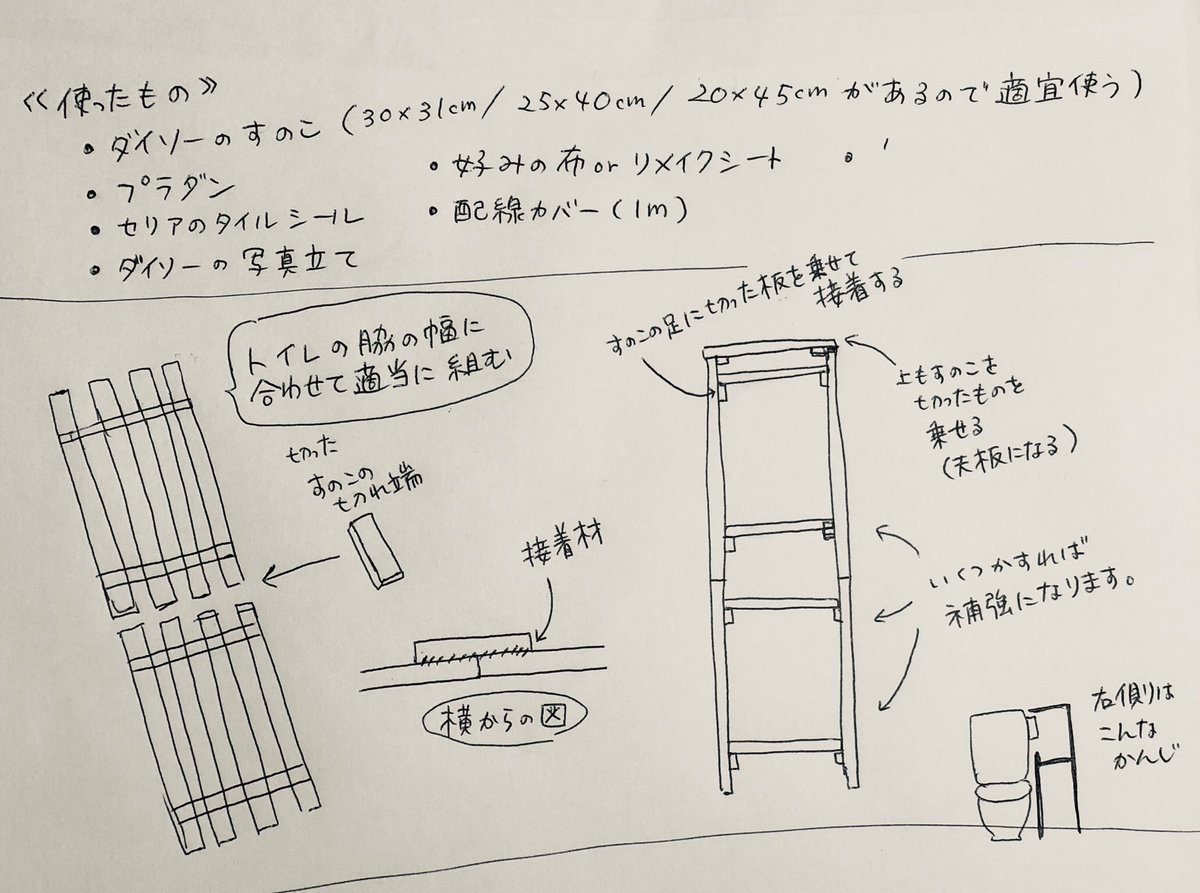 ≪使ったもの≫
・ダイソーのすのこ (30×31cm/ 25×40cm/ 20×45cmがあるので適宜使う)
・プラダン
・セリアのタイルシール
・ダイソーの写真立て
・好みの布orリメイクシート
・配線カバー(1m)
・
トイレの脇の幅に
合わせて適当に組む
切った
すのこの
切れ端
接着材
横からの図
すのこの足に切った板を乗せて
接着する
上もすのこを
切ったものを
乗せる
(天板になる)
いくつかすれば
補強になります。
右側は
こんな
かんじ